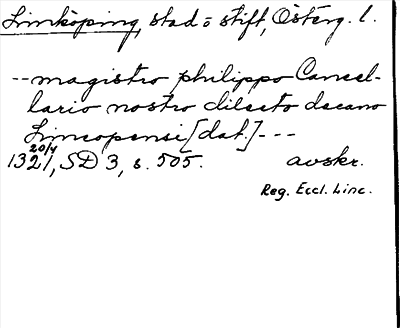 Linköping, stad o stift, Österg. l.
--magistro philippo Cancel-
lario nostro dilecto decano
Lincopensi [dat.]---
20/4
1321, SD 3, s. 505. avskr.
Reg. Eccl. Linc.